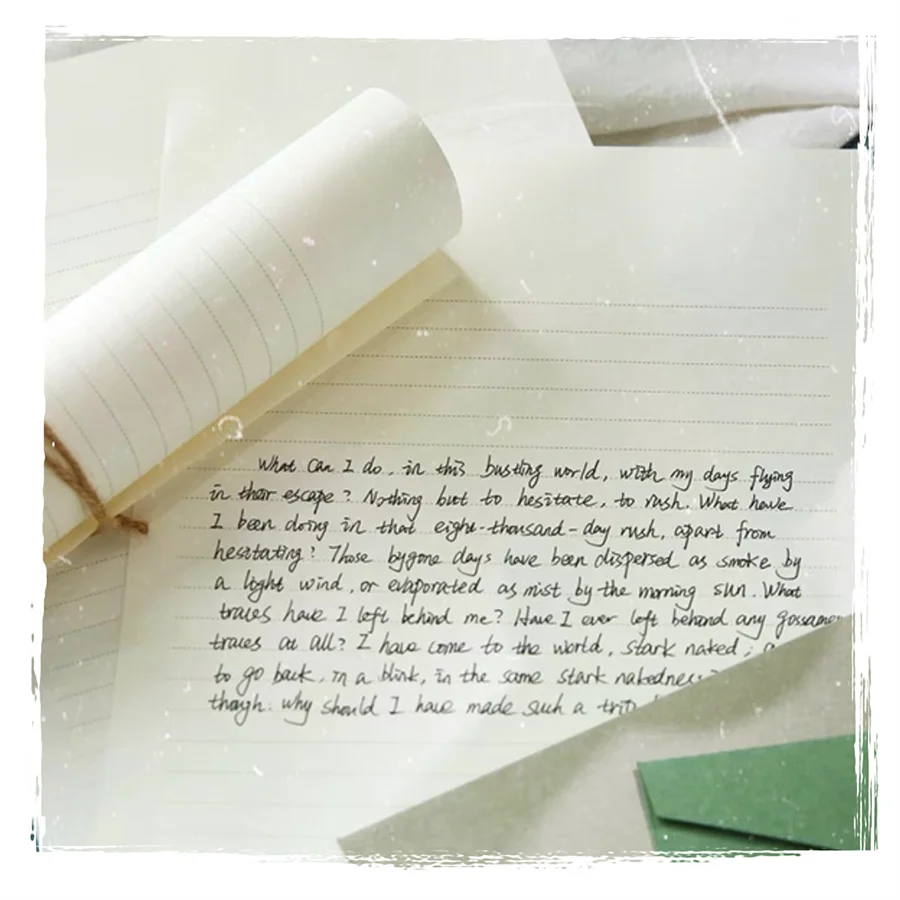 What can I do, in this bustling world, with my days flying
in their escape? Nothing but to hesitate, to rush. What have
I been doing in that eight-thousand-day rush, apart from
hesitating? Those bygone days have been dispersed as smoke by
a light wind, or evaporated as mist by the morning sun. What
traces have I left behind me? Have I ever left behind any gossamer
traces at all? I have come to the world, stark naked;
to go back, in a blink, in the same stark nakedness?
though: why should I have made such a trip